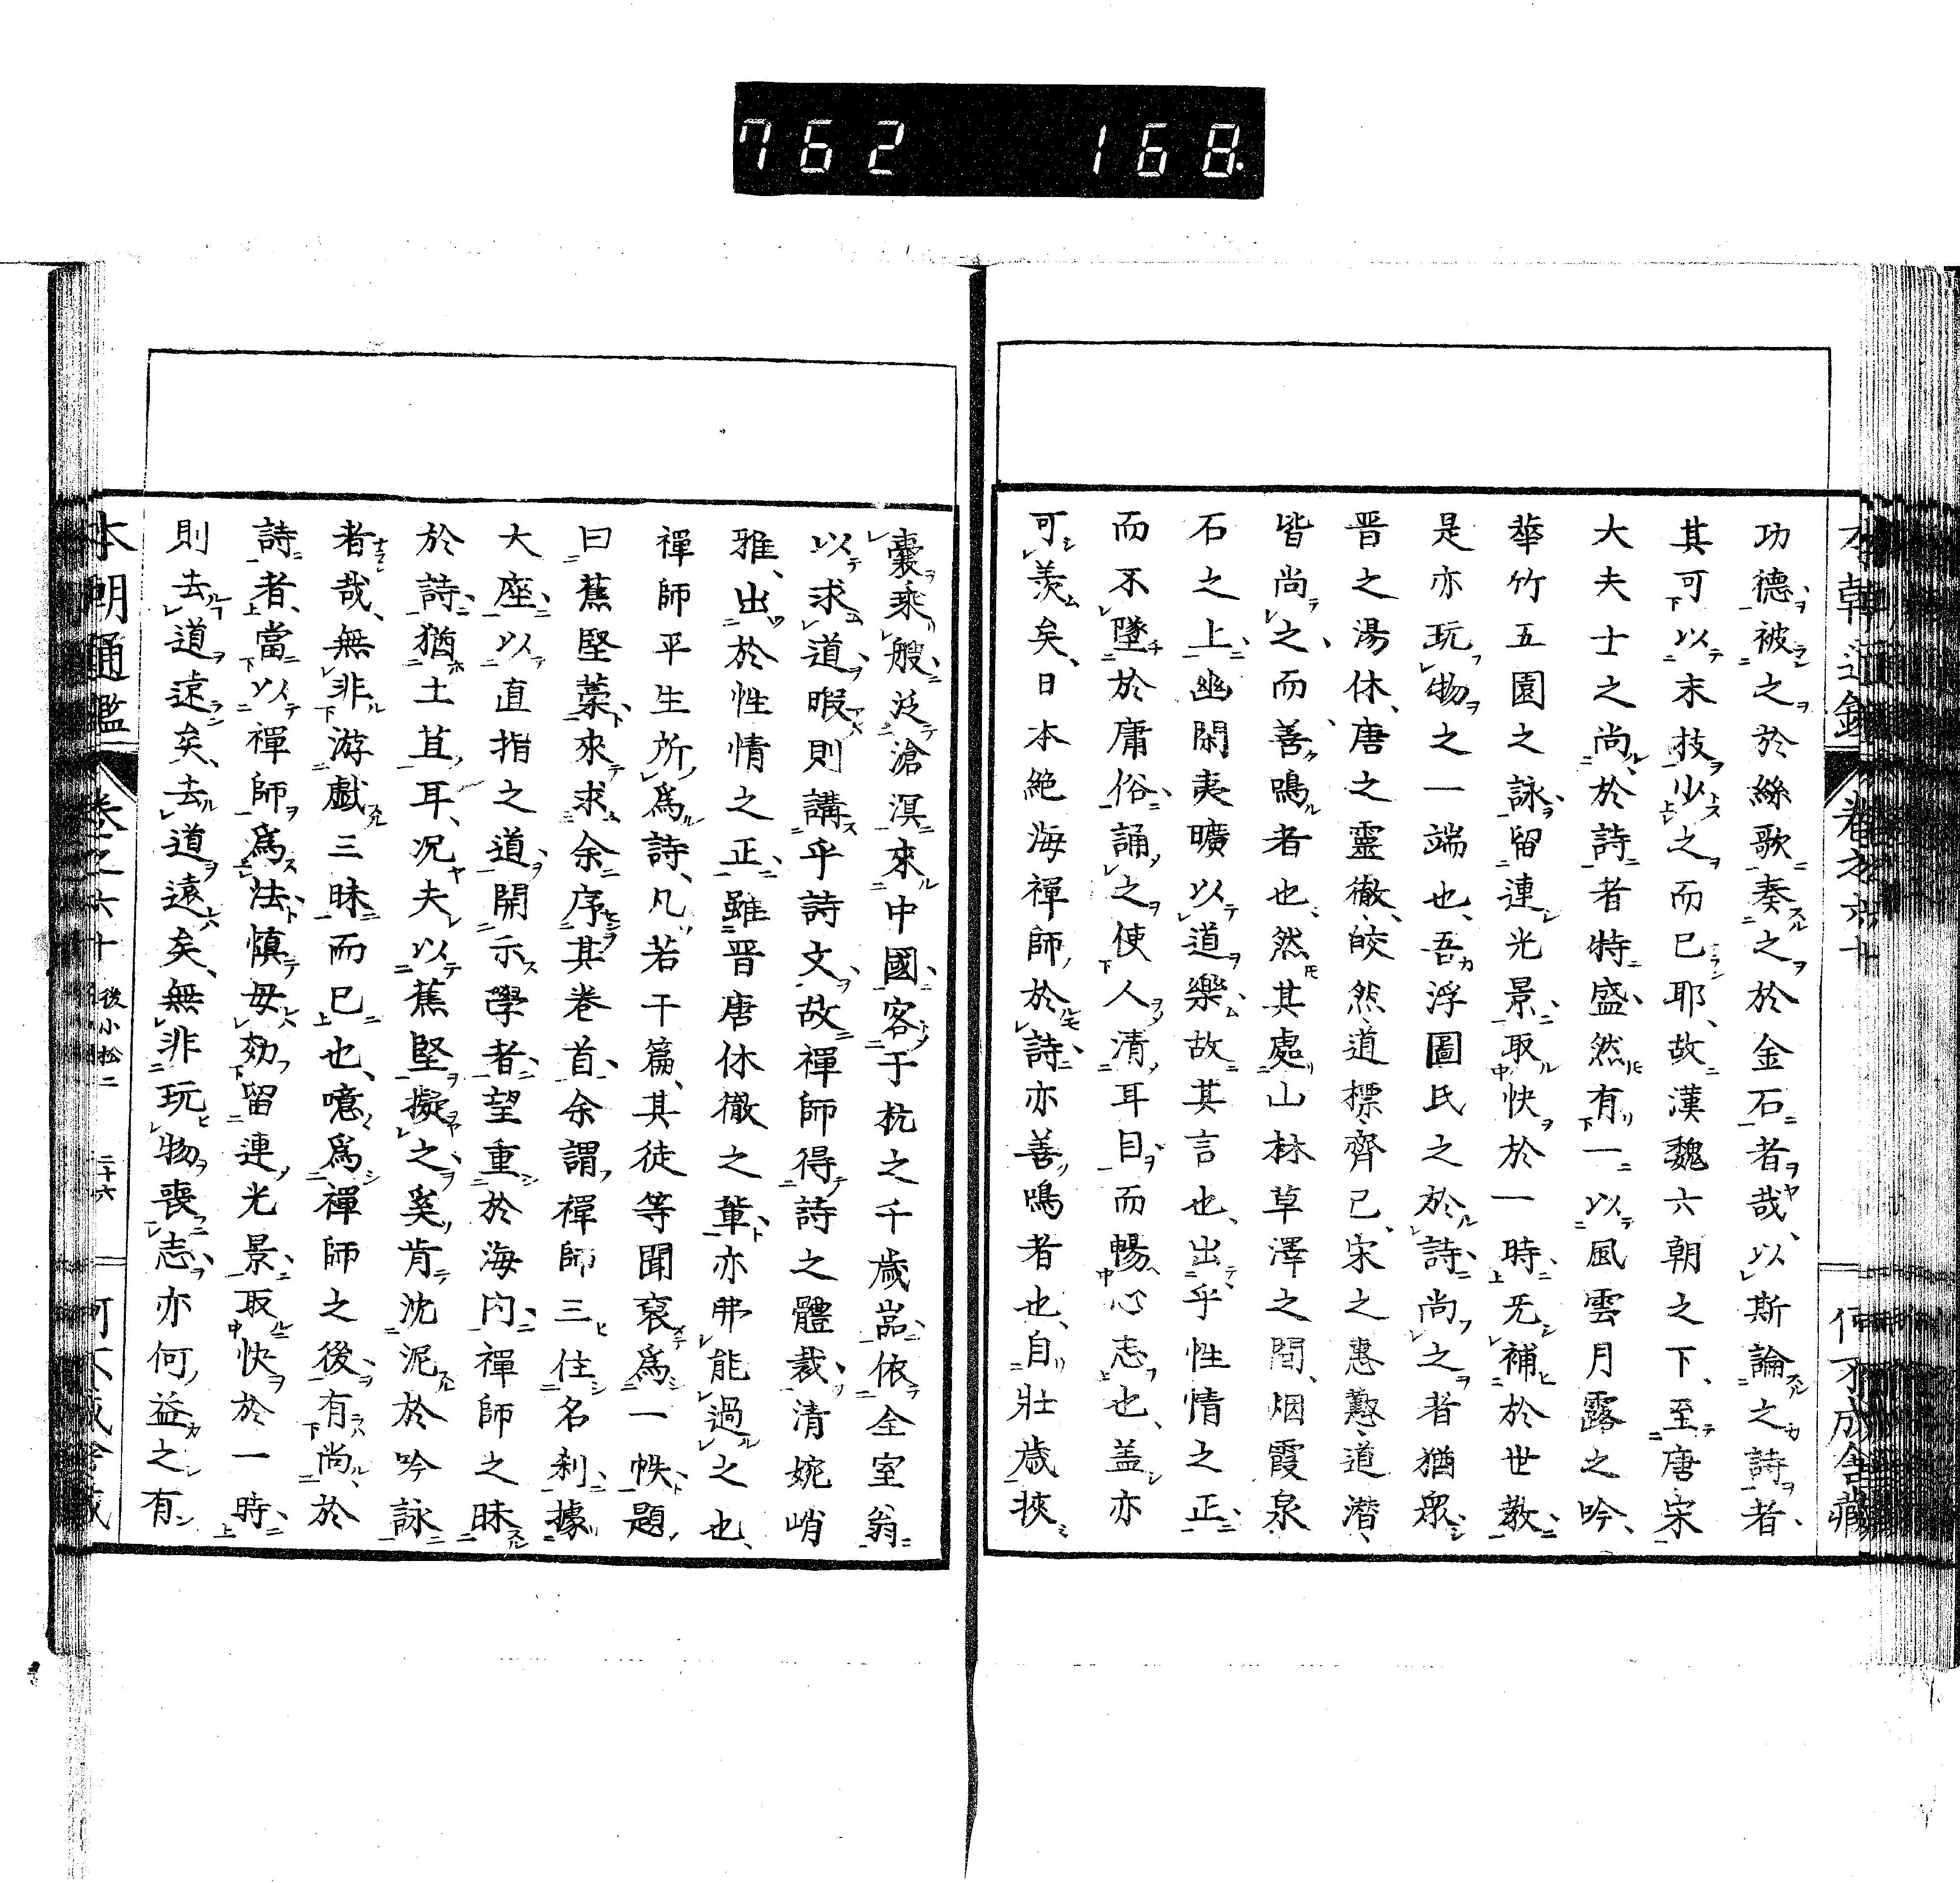 762 168
功德被之於絲歌奏之於金石者哉以斯論之詩者
其可以末技少之而已耶故漢魏六朝之下至唐宋
大夫士之尚於詩者特盛然有一以風雲月露之吟
華竹五園之詠留連光景取快於一時无補於世教
是亦玩物之一端也吾浮圖氏之於詩尚之者猶眾
晋之湯休唐之靈徹皎然道標齊己宋之惠懃道潜
皆尚之而善鳴者也然其處山林草澤之間烟霞泉
石之上幽閑夷曠以道樂故其言也出乎性情之正
而不墜於庸俗誦之使人清耳目而暢心志也盖亦
可羨矣日本絶海禪師於詩亦善鳴者也自壯歳挾
囊乘艘泛滄溟來中國客于杭之千歳嵓依全室翁
以求道暇則講乎詩文故禪師得詩之體裁清婉峭
雅出於性情之正雖晋唐休徹之輩亦弗能過之也
禪師平生所爲詩凡若干篇其徒等聞裒爲一帙題
曰蕉堅藁來求余序其卷首余謂禪師三住名刹據
大座以直指之道開示學者望重於海内禪師之昧
於詩猶土苴耳况夫以蕉堅擬之奚肯沈泥於吟詠
者哉無非游戲三昧而已也噫爲禪師之後有尚於
詩者當以禪師爲法慎毋効留連光景取快於一時
則去道遠矣去道遠矣無非玩物喪志亦何益之有
本朝通鑑 卷之六十 後小松二 二十六